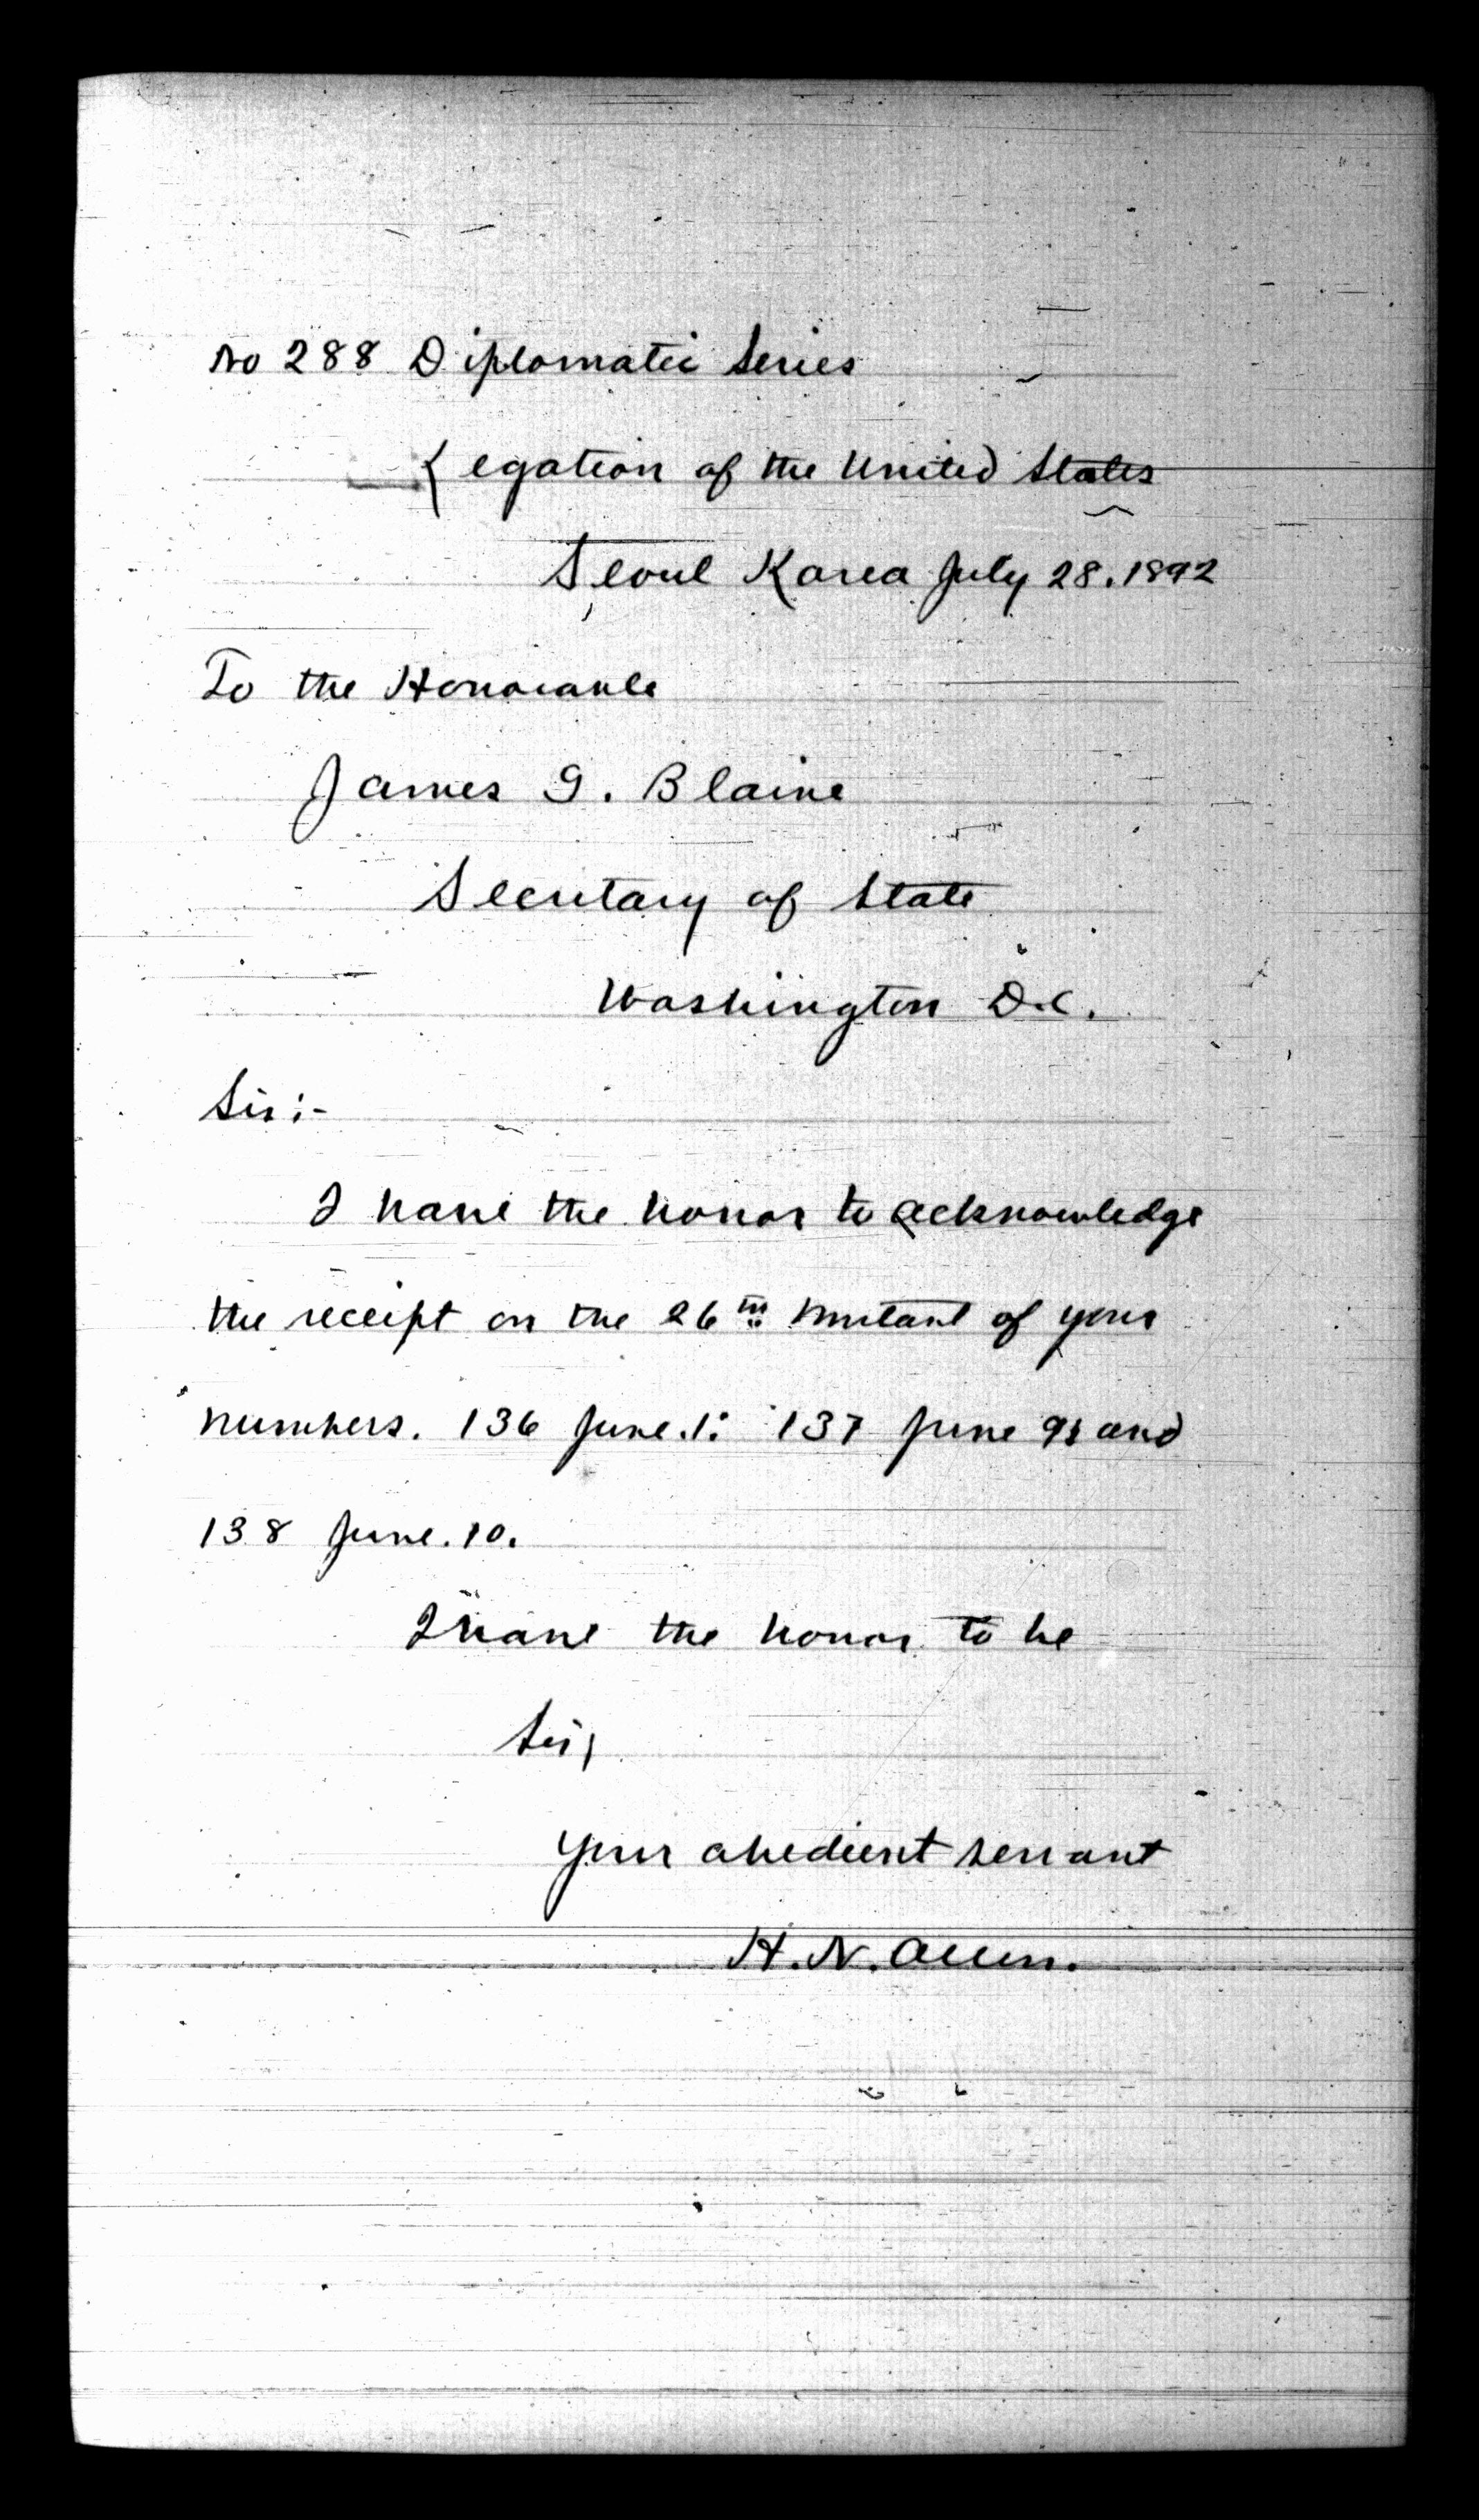 No 288 Diplomatic Series
Legation of the United States
Seoul Korea July 28. 1892
To the Honorable
James G. Blaine
Secretary of State
Washington D.C.
Sir:-
I have the honor to acknowledge
the receipt on the 26th instant of your
numbers. 136 June. 1: 137 June 9; and
138 June. 10.
I have the honor to be
Sir,
Your obedient servant
H. N. Allen.